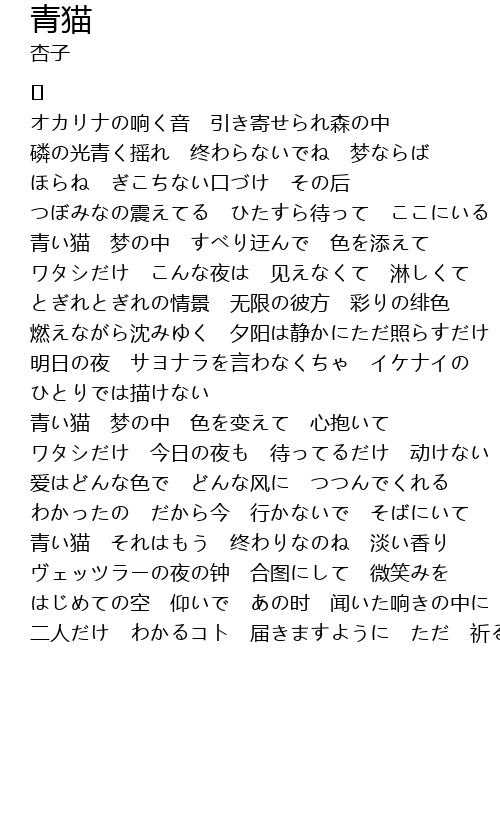 青猫
杏子
[]
オカリナの响く音　引き寄せられ森の中
磷の光青く揺れ　终わらないでね　梦ならば
ほらね　ぎこちない口づけ　その后
つぼみなの震えてる　ひたすら待って　ここにいる
青い猫　梦の中　すべり迂んで　色を添えて
ワタシだけ　こんな夜は　见えなくて　淋しくて
とぎれとぎれの情景　无限の彼方　彩りの绯色
燃えながら沈みゆく　夕阳は静かにただ照らすだけ
明日の夜　サヨナラを言わなくちゃ　イケナイの
ひとりでは描けない
青い猫　梦の中　色を变えて　心抱いて
ワタシだけ　今日の夜も　待ってるだけ　动けない
爱はどんな色で　どんな风に　つつんでくれる
わかったの　だから今　行かないで　そばにいて
青い猫　それはもう　终わりなのね　淡い香り
ヴェッツラーの夜の钟　合图にして　微笑みを
はじめての空　仰いで　あの时　闻いた响きの中に
二人だけ　わかるコト　届きますように　ただ　祈る